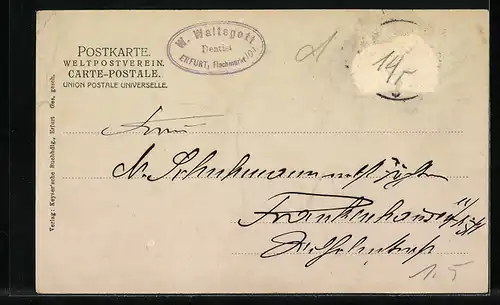 POSTKARTE.
WELTPOSTVEREIN.
CARTE-POSTALE.
UNION POSTALE UNIVERSELLE.
W. Waltsgott
Dentist
ERFURT, Fischmarkt
Verlag: Keyser'sche Buchhdlg., Erfurt Ges. gesch.
Frau
Schuhmann
Frankenhausen
Wilhelmstraße
15